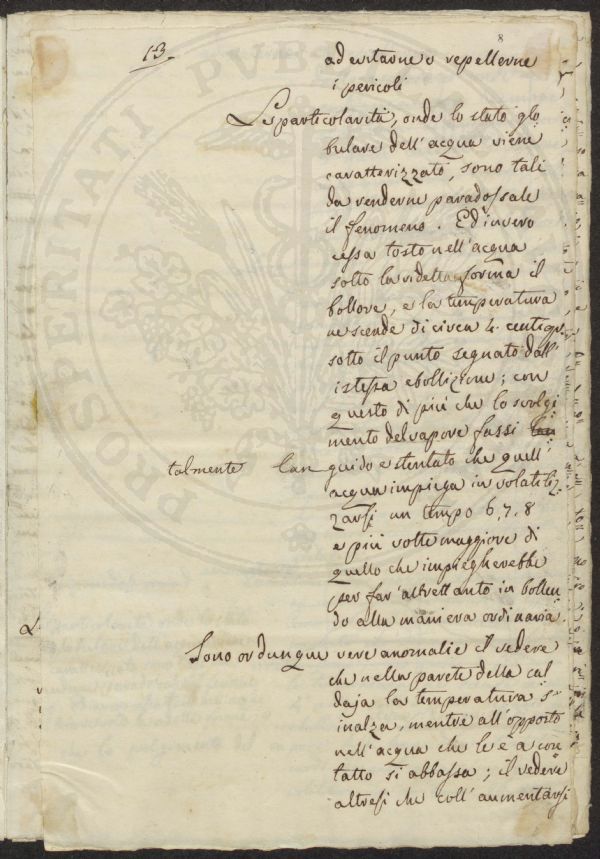 8
13.
ad evitarne o repellerne
i pericoli
Le particolarità, onde lo stato glo
bulare dell'acqua viene
caratterizzato, sono tali
da renderne paradossale
il fenomeno. Ed invero
cessa tosto nell'acqua
sotto la ridetta forma il
bollore, e la temperatura
ne scende di circa 4. centigr.
sotto il punto segnato dall'
istessa ebollizione; con
questo di più che lo svolgi
mento del vapore fassi
talmente lan guido e stentato che quell'
acqua impiega in volatiliz
zarsi un tempo 6, 7, 8
e più volte maggiore di
quello che impiegherebbe
per far altrettanto in bollen
do alla maniera ordinaria.
Sono or dunque vere anomalie il vedere
che nella parete della cal
daja la temperatura s'
inalza, mentre all'opposto
nell'acqua che le è a con
tatto si abbassa; il vedere
altresì che coll'aumentarsi
PROSPERITATI PUB